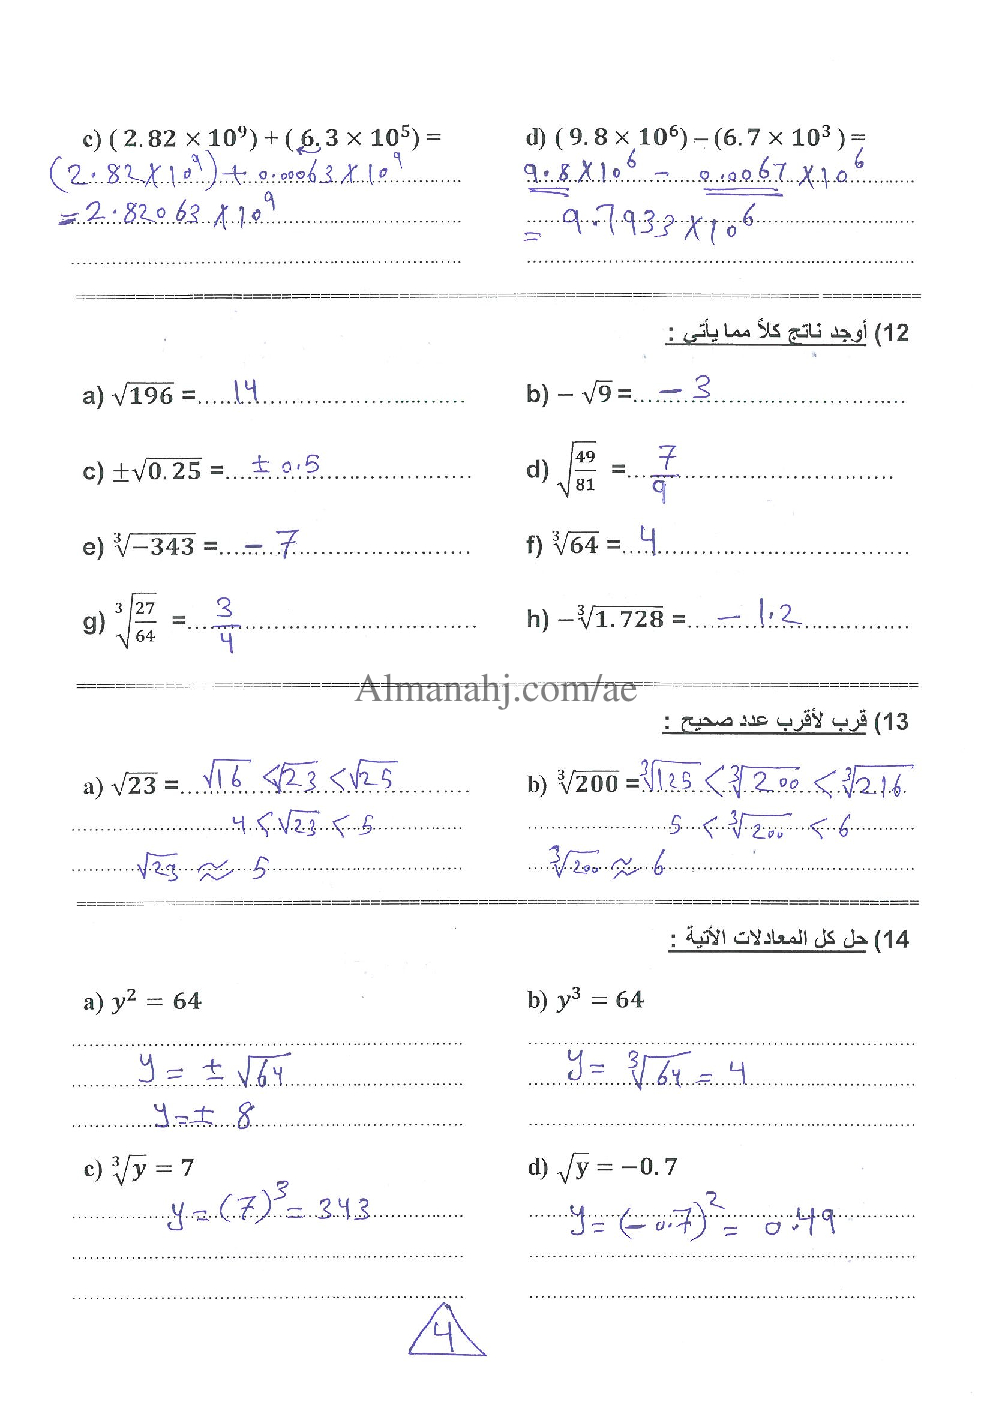 c) ( 2.82 × 10⁹) + ( 6.3 × 10⁵) =
(2.82 × 10⁹) + 0.00063 × 10⁹
= 2.82063 × 10⁹
d) ( 9.8 × 10⁶) – (6.7 × 10³ ) =
9.8 × 10⁶ – 0.0067 × 10⁶
= 9.7933 × 10⁶
12) أوجد ناتج كلاً مما يأتي :
a) √196 = 14
b) – √9 = – 3
c) ±√0.25 = ± 0.5
d) √(49/81) = 7/9
e) ∛–343 = – 7
f) ∛64 = 4
g) ∛(27/64) = 3/4
h) –∛1.728 = – 1.2
Almanahj.com/ae
13) قرب لأقرب عدد صحيح :
a) √23 = √16 < √23 < √25
4 < √23 < 5
√23 ≈ 5
b) ∛200 = ∛125 < ∛200 < ∛216
5 < ∛200 < 6
∛200 ≈ 6
14) حل كل المعادلات الأتية :
a) y² = 64
y = ± √64
y = ± 8
b) y³ = 64
y = ∛64 = 4
c) ∛y = 7
y = (7)³ = 343
d) √y = –0.7
y = (–0.7)² = 0.49
4